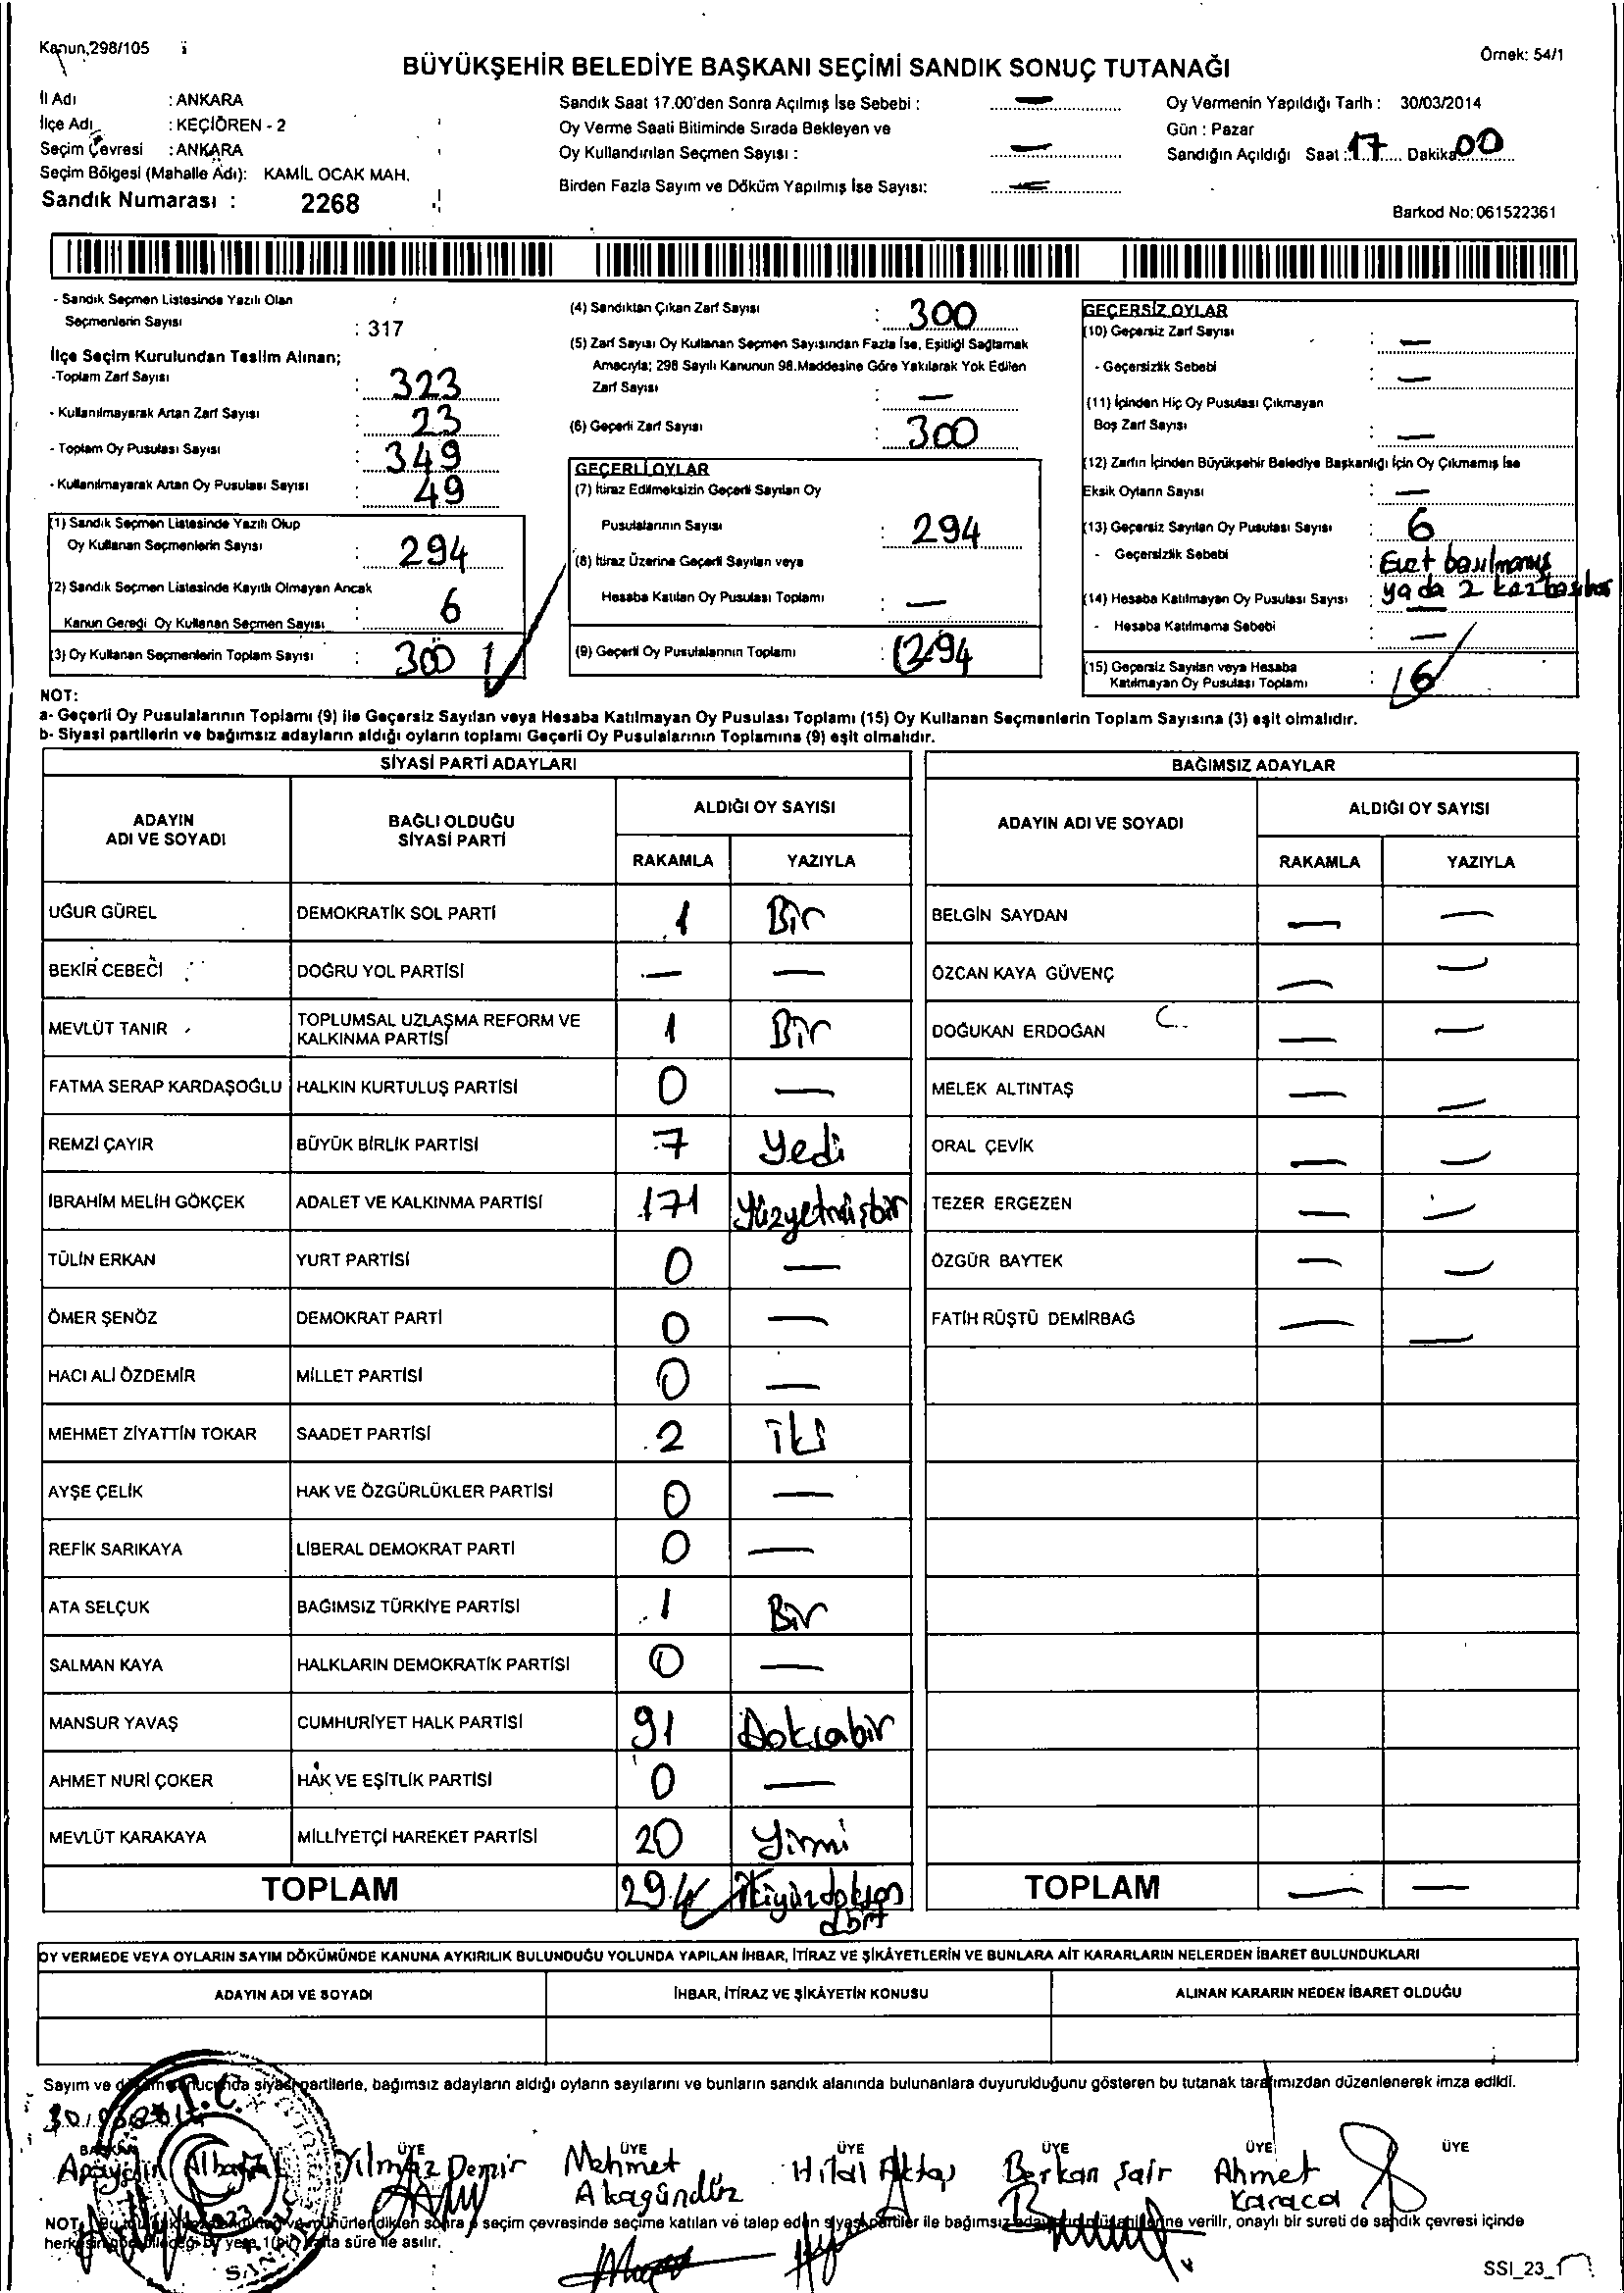 Kanun,298/105
Örnek: 54/1
BÜYÜKŞEHİR BELEDİYE BAŞKANI SEÇİMİ SANDIK SONUÇ TUTANAĞI
İl Adı : ANKARA
İlçe Adı : KEÇİÖREN - 2
Seçim Çevresi : ANKARA
Seçim Bölgesi (Mahalle Adı): KAMİL OCAK MAH.
Sandık Numarası : 2268
Sandık Saat 17.00'den Sonra Açılmış İse Sebebi : —
Oy Verme Saati Bitiminde Sırada Bekleyen ve
Oy Kullandırılan Seçmen Sayısı : —
Birden Fazla Sayım ve Döküm Yapılmış İse Sayısı: —
Oy Vermenin Yapıldığı Tarih : 30/03/2014
Gün : Pazar
Sandığın Açıldığı Saat : 17 Dakika 00
Barkod No: 061522361
- Sandık Seçmen Listesinde Yazılı Olan
Seçmenlerin Sayısı : 317
İlçe Seçim Kurulundan Teslim Alınan;
-Toplam Zarf Sayısı : 323
- Kullanılmayarak Artan Zarf Sayısı : 23
- Toplam Oy Pusulası Sayısı : 349
- Kullanılmayarak Artan Oy Pusulası Sayısı : 49
(1) Sandık Seçmen Listesinde Yazılı Olup
Oy Kullanan Seçmenlerin Sayısı : 294
(2) Sandık Seçmen Listesinde Kayıtlı Olmayan Ancak
Kanun Gereği Oy Kullanan Seçmen Sayısı : 6
(3) Oy Kullanan Seçmenlerin Toplam Sayısı : 300
(4) Sandıktan Çıkan Zarf Sayısı : 300
(5) Zarf Sayısı Oy Kullanan Seçmen Sayısından Fazla İse, Eşitliği Sağlamak
Amacıyla; 298 Sayılı Kanunun 98.Maddesine Göre Yakılarak Yok Edilen
Zarf Sayısı : —
(6) Geçerli Zarf Sayısı : 300
GEÇERLİ OYLAR
(7) İtiraz Edilmeksizin Geçerli Sayılan Oy
Pusulalarının Sayısı : 294
(8) İtiraz Üzerine Geçerli Sayılan veya
Hesaba Katılan Oy Pusulası Toplamı : —
(9) Geçerli Oy Pusulalarının Toplamı : 294
GEÇERSİZ OYLAR
(10) Geçersiz Zarf Sayısı : —
- Geçersizlik Sebebi : —
(11) İçinden Hiç Oy Pusulası Çıkmayan
Boş Zarf Sayısı : —
(12) Zarfın İçinden Büyükşehir Belediye Başkanlığı İçin Oy Çıkmamış İse
Eksik Oyların Sayısı : —
(13) Geçersiz Sayılan Oy Pusulası Sayısı : 6
- Geçersizlik Sebebi : Evet basılmamış
ya da 2 kez
(14) Hesaba Katılmayan Oy Pusulası Sayısı : —
- Hesaba Katılmama Sebebi : —
(15) Geçersiz Sayılan veya Hesaba
Katılmayan Oy Pusulası Toplamı : 6
NOT:
a- Geçerli Oy Pusulalarının Toplamı (9) ile Geçersiz Sayılan veya Hesaba Katılmayan Oy Pusulası Toplamı (15) Oy Kullanan Seçmenlerin Toplam Sayısına (3) eşit olmalıdır.
b- Siyasi partilerin ve bağımsız adayların aldığı oyların toplamı Geçerli Oy Pusulalarının Toplamına (9) eşit olmalıdır.
SİYASİ PARTİ ADAYLARI
ADAYIN ADI VE SOYADI BAĞLI OLDUĞU SİYASİ PARTİ ALDIĞI OY SAYISI
RAKAMLA YAZIYLA
UĞUR GÜREL DEMOKRATİK SOL PARTİ 1 Bir
BEKİR CEBECİ DOĞRU YOL PARTİSİ — —
MEVLÜT TANIR TOPLUMSAL UZLAŞMA REFORM VE KALKINMA PARTİSİ 1 Bir
FATMA SERAP KARDAŞOĞLU HALKIN KURTULUŞ PARTİSİ 0 —
REMZİ ÇAYIR BÜYÜK BİRLİK PARTİSİ 7 Yedi
İBRAHİM MELİH GÖKÇEK ADALET VE KALKINMA PARTİSİ 171 Yüzyetmişbir
TÜLİN ERKAN YURT PARTİSİ 0 —
ÖMER ŞENÖZ DEMOKRAT PARTİ 0 —
HACI ALİ ÖZDEMİR MİLLET PARTİSİ 0 —
MEHMET ZİYATTİN TOKAR SAADET PARTİSİ 2 İki
AYŞE ÇELİK HAK VE ÖZGÜRLÜKLER PARTİSİ 0 —
REFİK SARIKAYA LİBERAL DEMOKRAT PARTİ 0 —
ATA SELÇUK BAĞIMSIZ TÜRKİYE PARTİSİ 1 Bir
SALMAN KAYA HALKLARIN DEMOKRATİK PARTİSİ 0 —
MANSUR YAVAŞ CUMHURİYET HALK PARTİSİ 91
AHMET NURİ ÇOKER HAK VE EŞİTLİK PARTİSİ 0 —
MEVLÜT KARAKAYA MİLLİYETÇİ HAREKET PARTİSİ 20 Yirmi
TOPLAM 294 İkiyüzdoksan dört
BAĞIMSIZ ADAYLAR
ADAYIN ADI VE SOYADI ALDIĞI OY SAYISI
RAKAMLA YAZIYLA
BELGİN SAYDAN — —
ÖZCAN KAYA GÜVENÇ — —
DOĞUKAN ERDOĞAN — —
MELEK ALTINTAŞ — —
ORAL ÇEVİK — —
TEZER ERGEZEN — —
ÖZGÜR BAYTEK — —
FATİH RÜŞTÜ DEMİRBAĞ — —
TOPLAM — —
OY VERMEDE VEYA OYLARIN SAYIM DÖKÜMÜNDE KANUNA AYKIRILIK BULUNDUĞU YOLUNDA YAPILAN İHBAR, İTİRAZ VE ŞİKÂYETLERİN VE BUNLARA AİT KARARLARIN NELERDEN İBARET BULUNDUKLARI
ADAYIN ADI VE SOYADI İHBAR, İTİRAZ VE ŞİKÂYETİN KONUSU ALINAN KARARIN NEDEN İBARET OLDUĞU
Sayım ve siyasi partilerle, bağımsız adayların aldığı oyların sayılarını ve bunların sandık alanında bulunanlara duyurulduğunu gösteren bu tutanak tarafımızdan düzenlenerek imza edildi.
T.C.
BAŞKAN ÜYE ÜYE ÜYE ÜYE ÜYE ÜYE
Yılmaz Demir Mehmet Akagündüz Hilal Aktaş Berkan Şair Ahmet Karaca
NOT: sonra seçim çevresinde seçime katılan ve talep eden siyasi partiler ile bağımsız verilir, onaylı bir sureti de sandık çevresi içinde
yere, 1(bir) hafta süre ile asılır.
SSI_23_